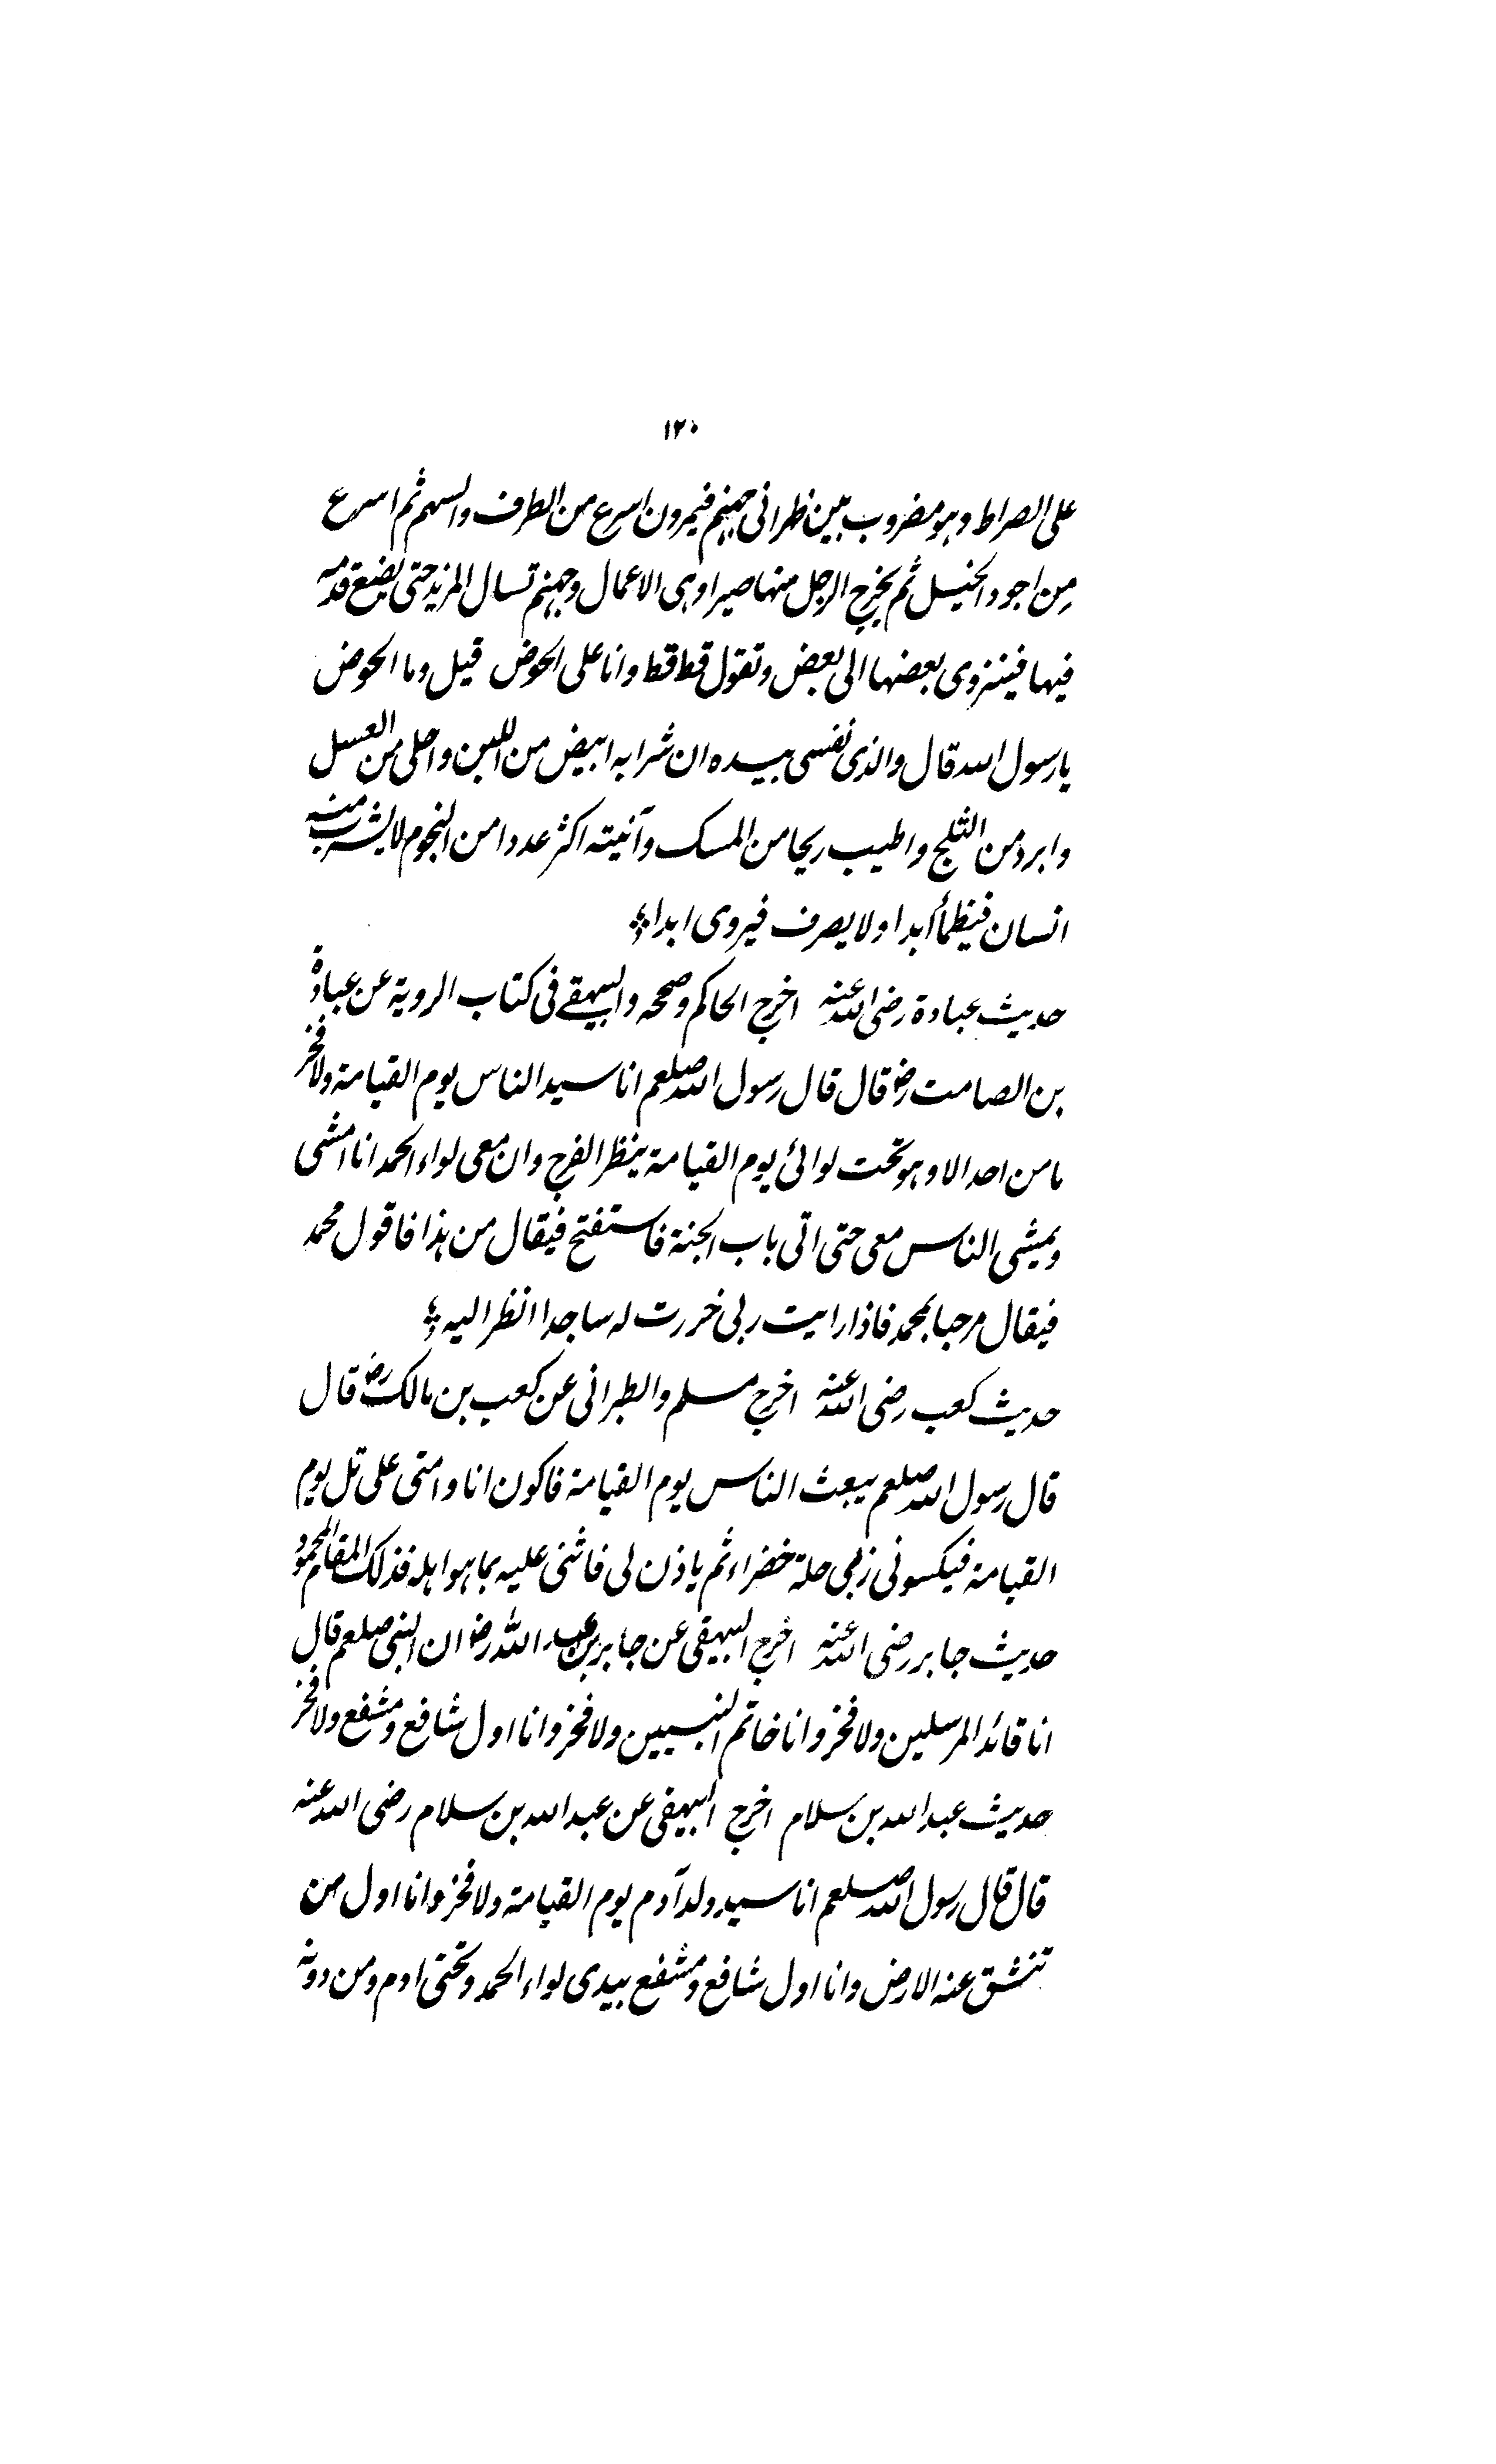 ١٢٠
على الصراط وهو مضروب بين ظهرانى جهنم فيمرون اسرع من الطرف والسهم ثم اسرع
من اجود الخيل ثم يخرج الرجل منها صبرا وهى الاعمال وجهنم تسال المزيد حتى يضع قدمه
فيها فينزوى بعضها الى بعض وتقول قط قط وانا على الحوض قيل وما الحوض
يا رسول الله قال والذى نفسى بيده ان شرابه ابيض من اللبن واحلى من العسل
وابرد من الثلج واطيب ريحا من المسك وآنيته اكثر عددا من النجوم لا يشرب منه
انسان فيظمأ ابدا ولا يصرف فيروى ابدا
حديث عبادة رضى الله عنه اخرج الحاكم وصححه والبيهقے فى كتاب الروية عن عبادة
بن الصامت رض قال قال رسول الله صلعم انا سيد الناس يوم القيامة ولا فخر
ما من احد الا وهو تحت لوائى يوم القيامة ينظر الفرج وان معى لواء الحمد انا امشى
ويمشى الناس معى حتى اتى باب الجنة فاستفتح فيقال من هذا فاقول محمد
فيقال مرحبا بمحمد فاذا رايت ربى خررت له ساجدا انظر اليه
حديث كعب رضى الله عنه اخرج مسلم والطبرانى عن كعب بن مالك رض قال
قال رسول الله صلعم يبعث الناس يوم القيامة فاكون انا وامتى على تل يوم
القيامة فيكسونى ربى حلة خضراء ثم ياذن لى فاثنى عليه بما هو اهله فذلك المقام المحمود
حديث جابر رضى الله عنه اخرج البيهقى عن جابر بن عبد الله رض ان النبى صلعم قال
انا قائد المرسلين ولا فخر وانا خاتم النبيين ولا فخر وانا اول شافع ومشفع ولا فخر
حديث عبد الله بن سلام اخرج البيهقى عن عبد الله بن سلام رضى الله عنه
قال قال رسول الله صلعم انا سيد ولد آدم يوم القيامة ولا فخر وانا اول من
تنشق عنه الارض وانا اول شافع ومشفع بيدى لواء الحمد وتحتى ادم ومن دونه